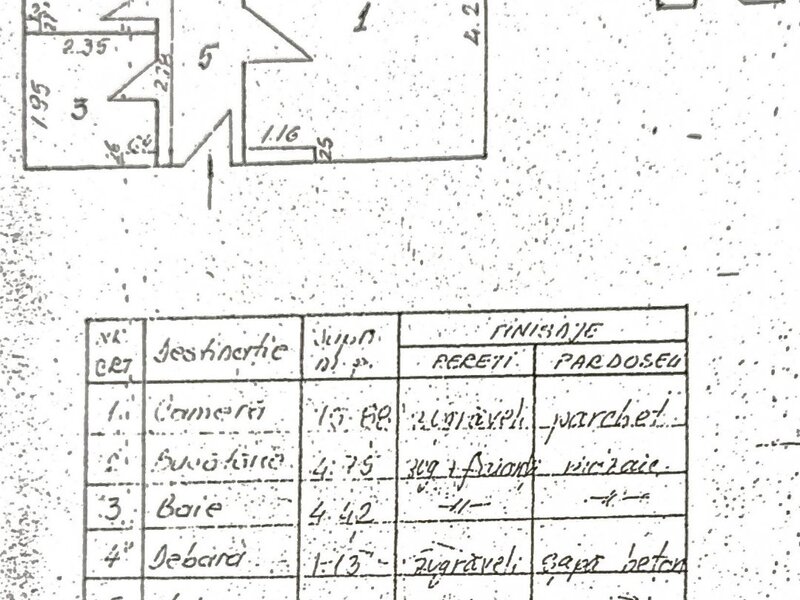 1
4.2
2.35
5
2.38
1.95
3
1.16
25
NR. CRT
Destinatie
Supr. m.p.
FINISAJE
PERETI
PARDOSELI
1 Camera 15.68 zugraveli parchet
2 Bucatarie 4.75 zug + faianta mozaic
3 Baie 4.42 -//- -//-
4 Debara 1.13 zugraveli sapa beton